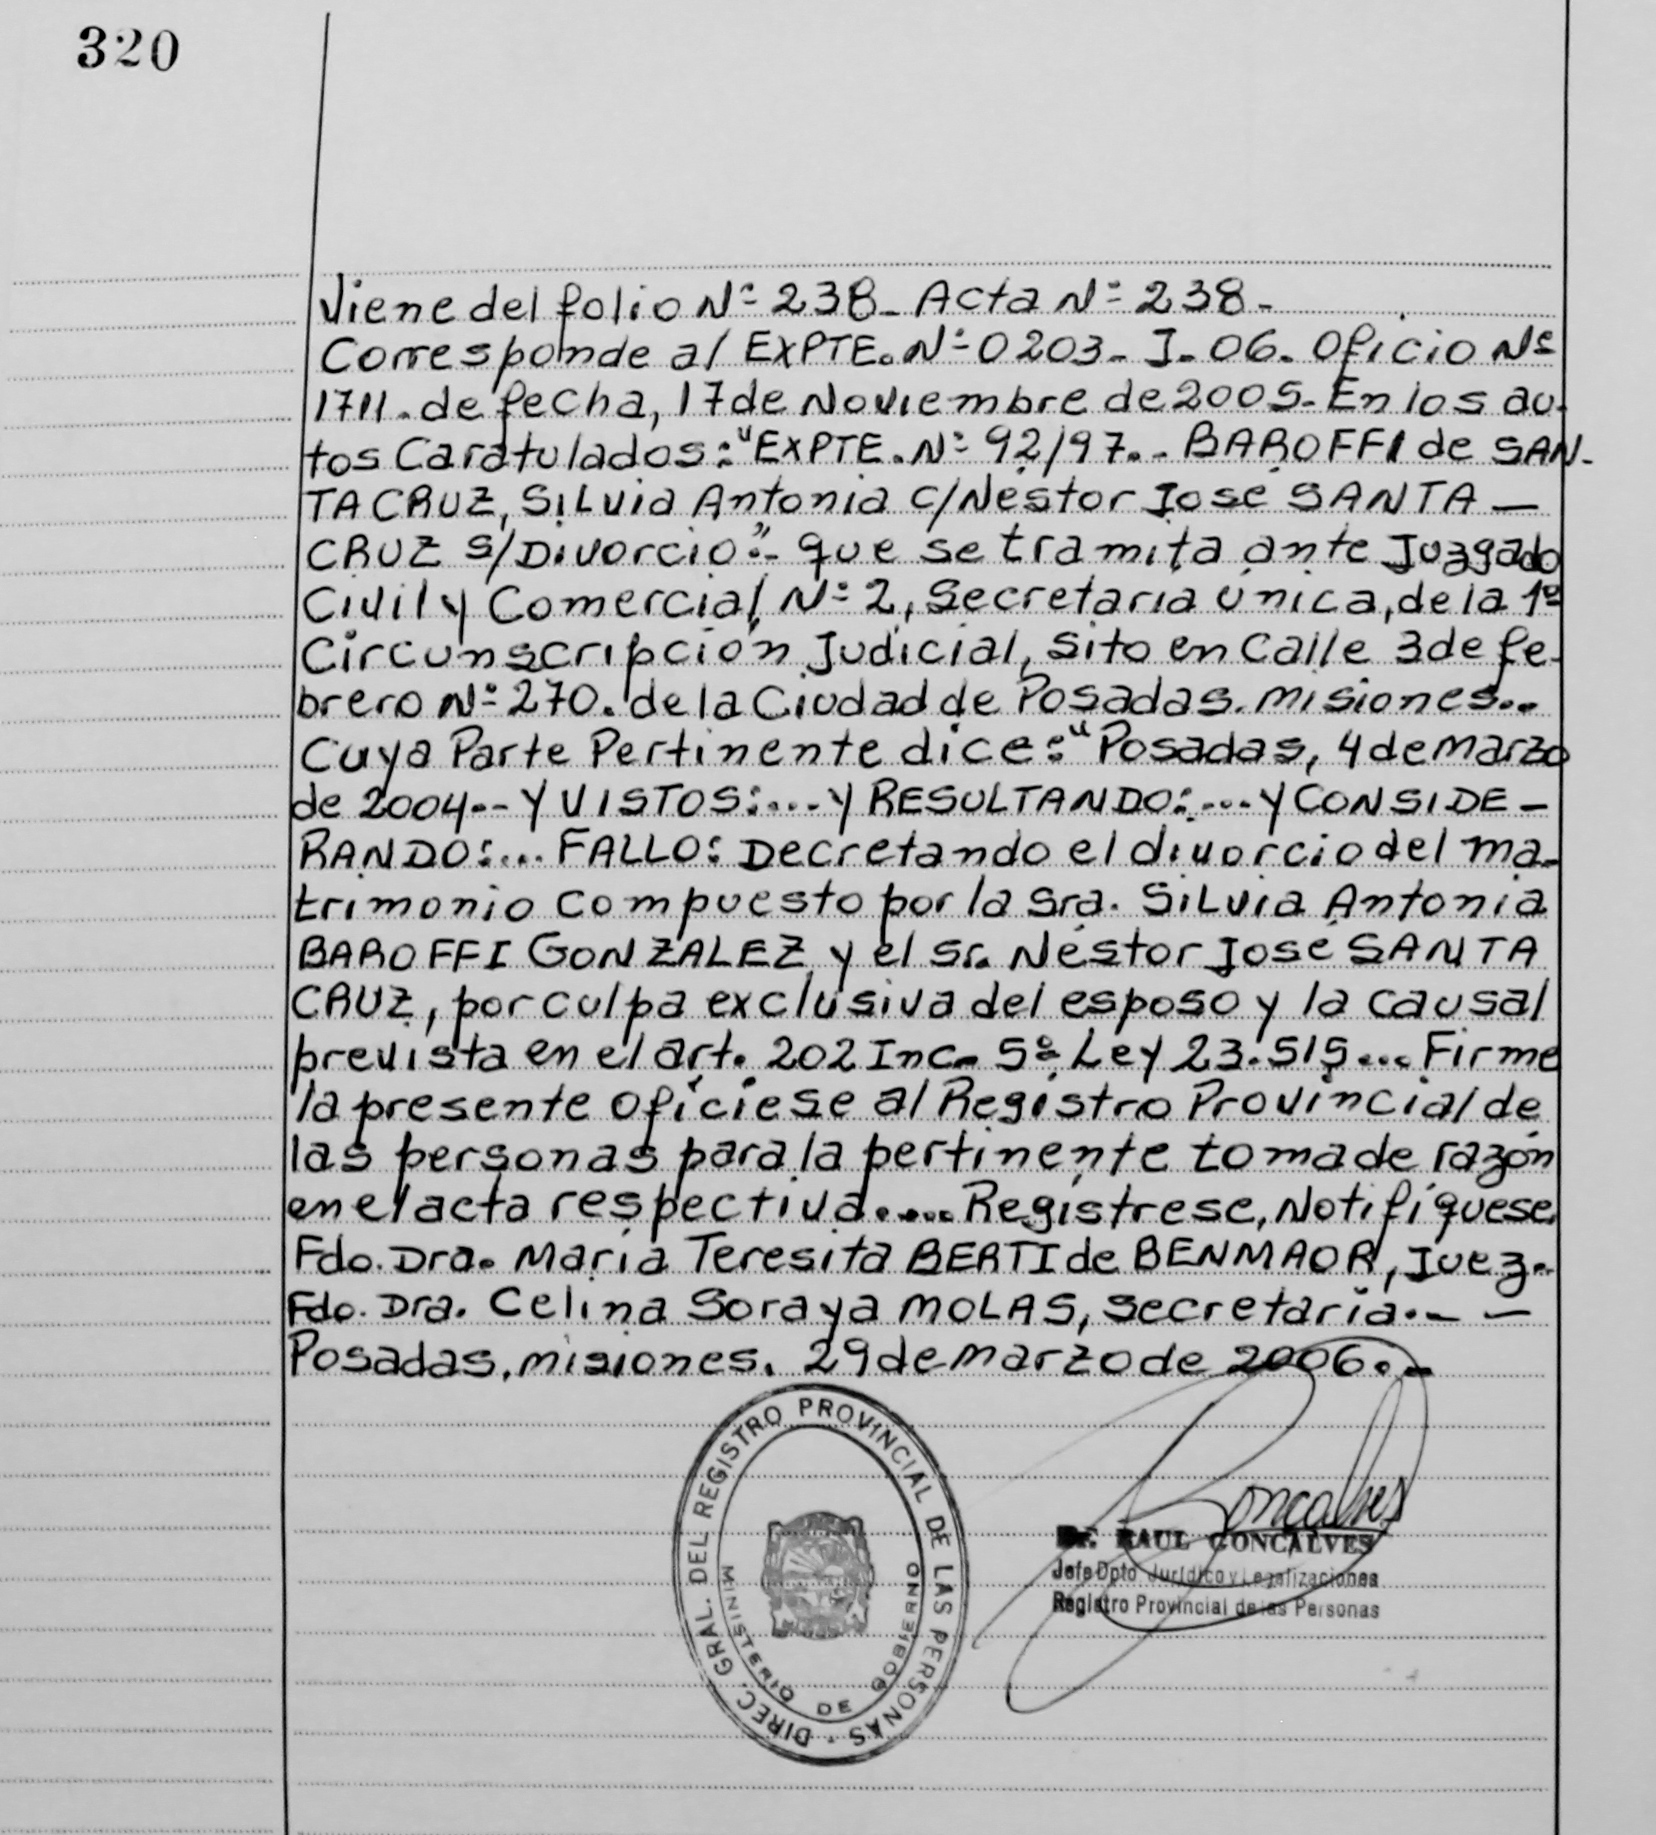 320
Viene del folio Nº 238_ Acta Nº 238_
Corresponde al EXPTE. Nº 0203_ J_ 06. Oficio Nº
1711. de fecha, 17 de Noviembre de 2005. En los au-
tos Caratulados: "EXPTE. Nº 92/97.._ BAROFFI de SAN-
TA CRUZ, Silvia Antonia c/Nestor José SANTA —
CRUZ s/Divorcio".- que se tramita ante Juzgado
Civil y Comercial Nº 2, Secretaría Única, de la 1º
Circunscripción Judicial, sito en Calle 3 de fe-
brero Nº 270. de la Ciudad de Posadas. Misiones...
Cuya Parte Pertinente dice: "Posadas, 4 de Marzo
de 2004.-- Y VISTOS:...- Y RESULTANDO:....- Y CONSIDE-
RANDO:... FALLO: Decretando el divorcio del ma-
trimonio compuesto por la Sra. Silvia Antonia
BAROFFI GONZALEZ y el Sr. Néstor José SANTA
CRUZ, por culpa exclusiva del esposo y la causal
prevista en el art. 202 Inc. 5º Ley 23.515.... Firme
la presente ofíciese al Registro Provincial de
las personas para la pertinente toma de razón
en el acta respectiva..... Regístrese, Notifíquese.
Fdo. Dra. María Teresita BERTI de BENMAOR, Juez.-
Fdo. Dra. Celina Soraya MOLAS, secretaria.- —
Posadas, misiones. 29 de marzo de 2006..-
DIREC. GRAL. DEL REGISTRO PROVINCIAL DE LAS PERSONAS
MINISTERIO DE GOBIERNO
Goncalves
Dr. RAUL GONCALVES
Jefe Dpto. Jurídico y Legalizaciones
Registro Provincial de las Personas